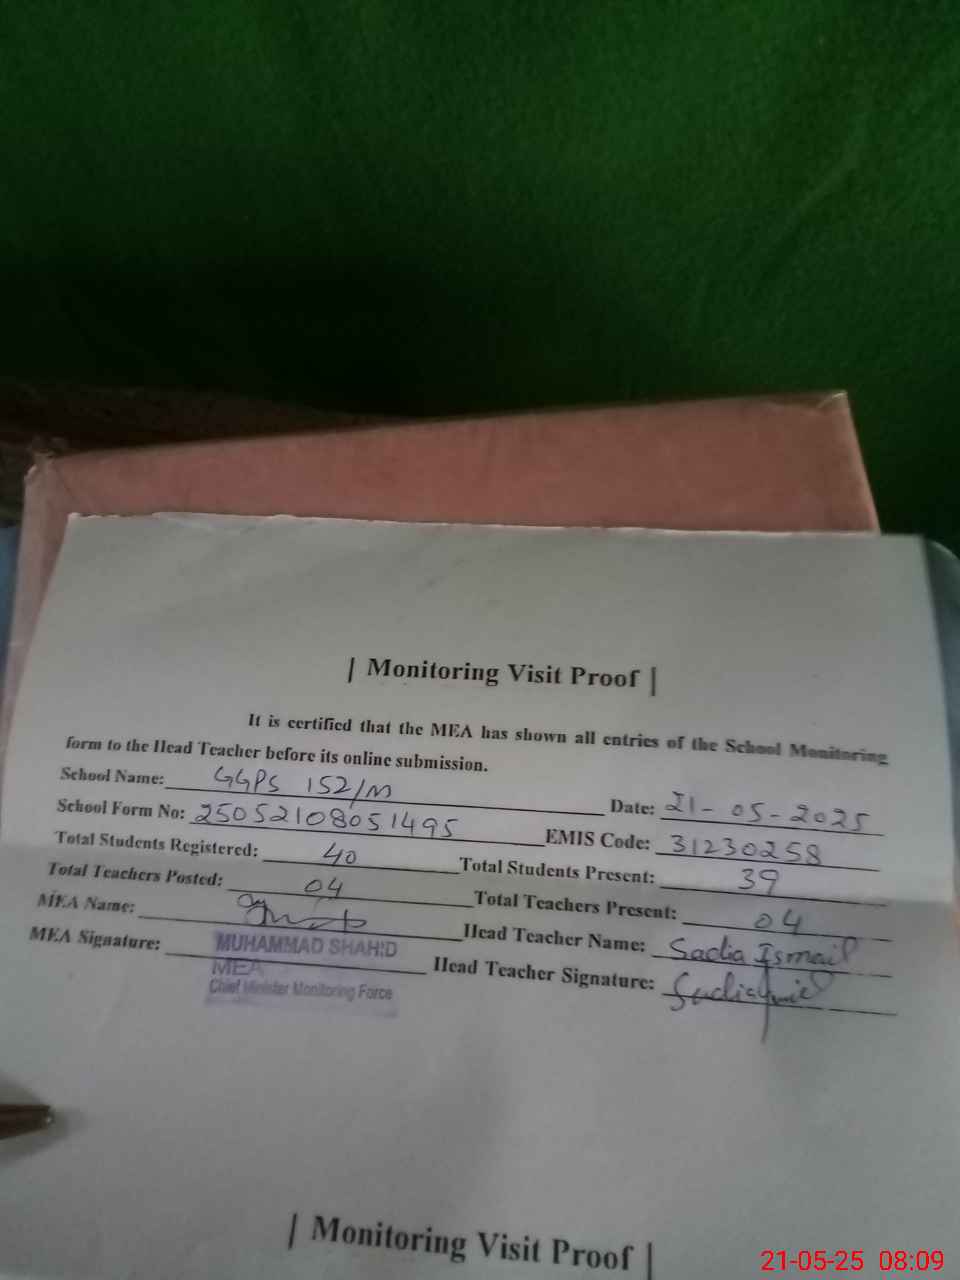 | Monitoring Visit Proof |
It is certified that the MEA has shown all entries of the School Monitoring
form to the Head Teacher before its online submission.
School Name: GGPS 152/M Date: 21-05-2025
School Form No: 25052108051495 EMIS Code: 31230258
Total Students Registered: 40 Total Students Present: 39
Total Teachers Posted: 04 Total Teachers Present: 04
MEA Name: Head Teacher Name: Sadia Ismail
MEA Signature: MUHAMMAD SHAHID Head Teacher Signature:
MEA
Chief Minister Monitoring Force
| Monitoring Visit Proof |
21-05-25 08:09